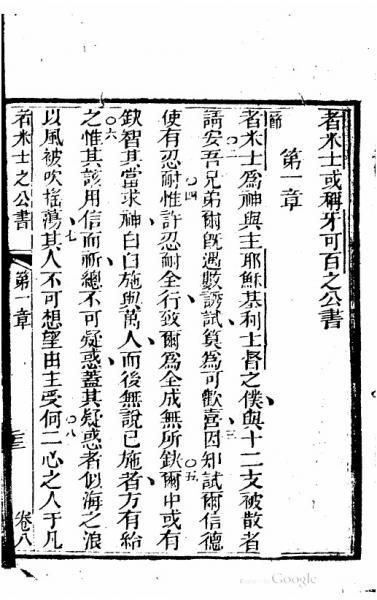 者米士或稱牙可百之公書
第一章
節
者米士爲神與主耶穌基利士督之僕與十二支被散者
請安吾兄弟爾旣遇數誘試算爲可歡喜因知試爾信德
〇二
〇三
使有忍耐惟許忍耐全行致爾爲全成無所缺爾中或有
〇四
〇五
缺智其當求神白白施與萬人而後無說已施者方有給
之惟其該用信而祈總不可疑惑蓋其疑惑者似海之浪
〇六
以風被吹搖蕩其人不可想望由主受何二心之人于凡
〇七
〇八
者米士之公書
第一章
三
卷八
Google